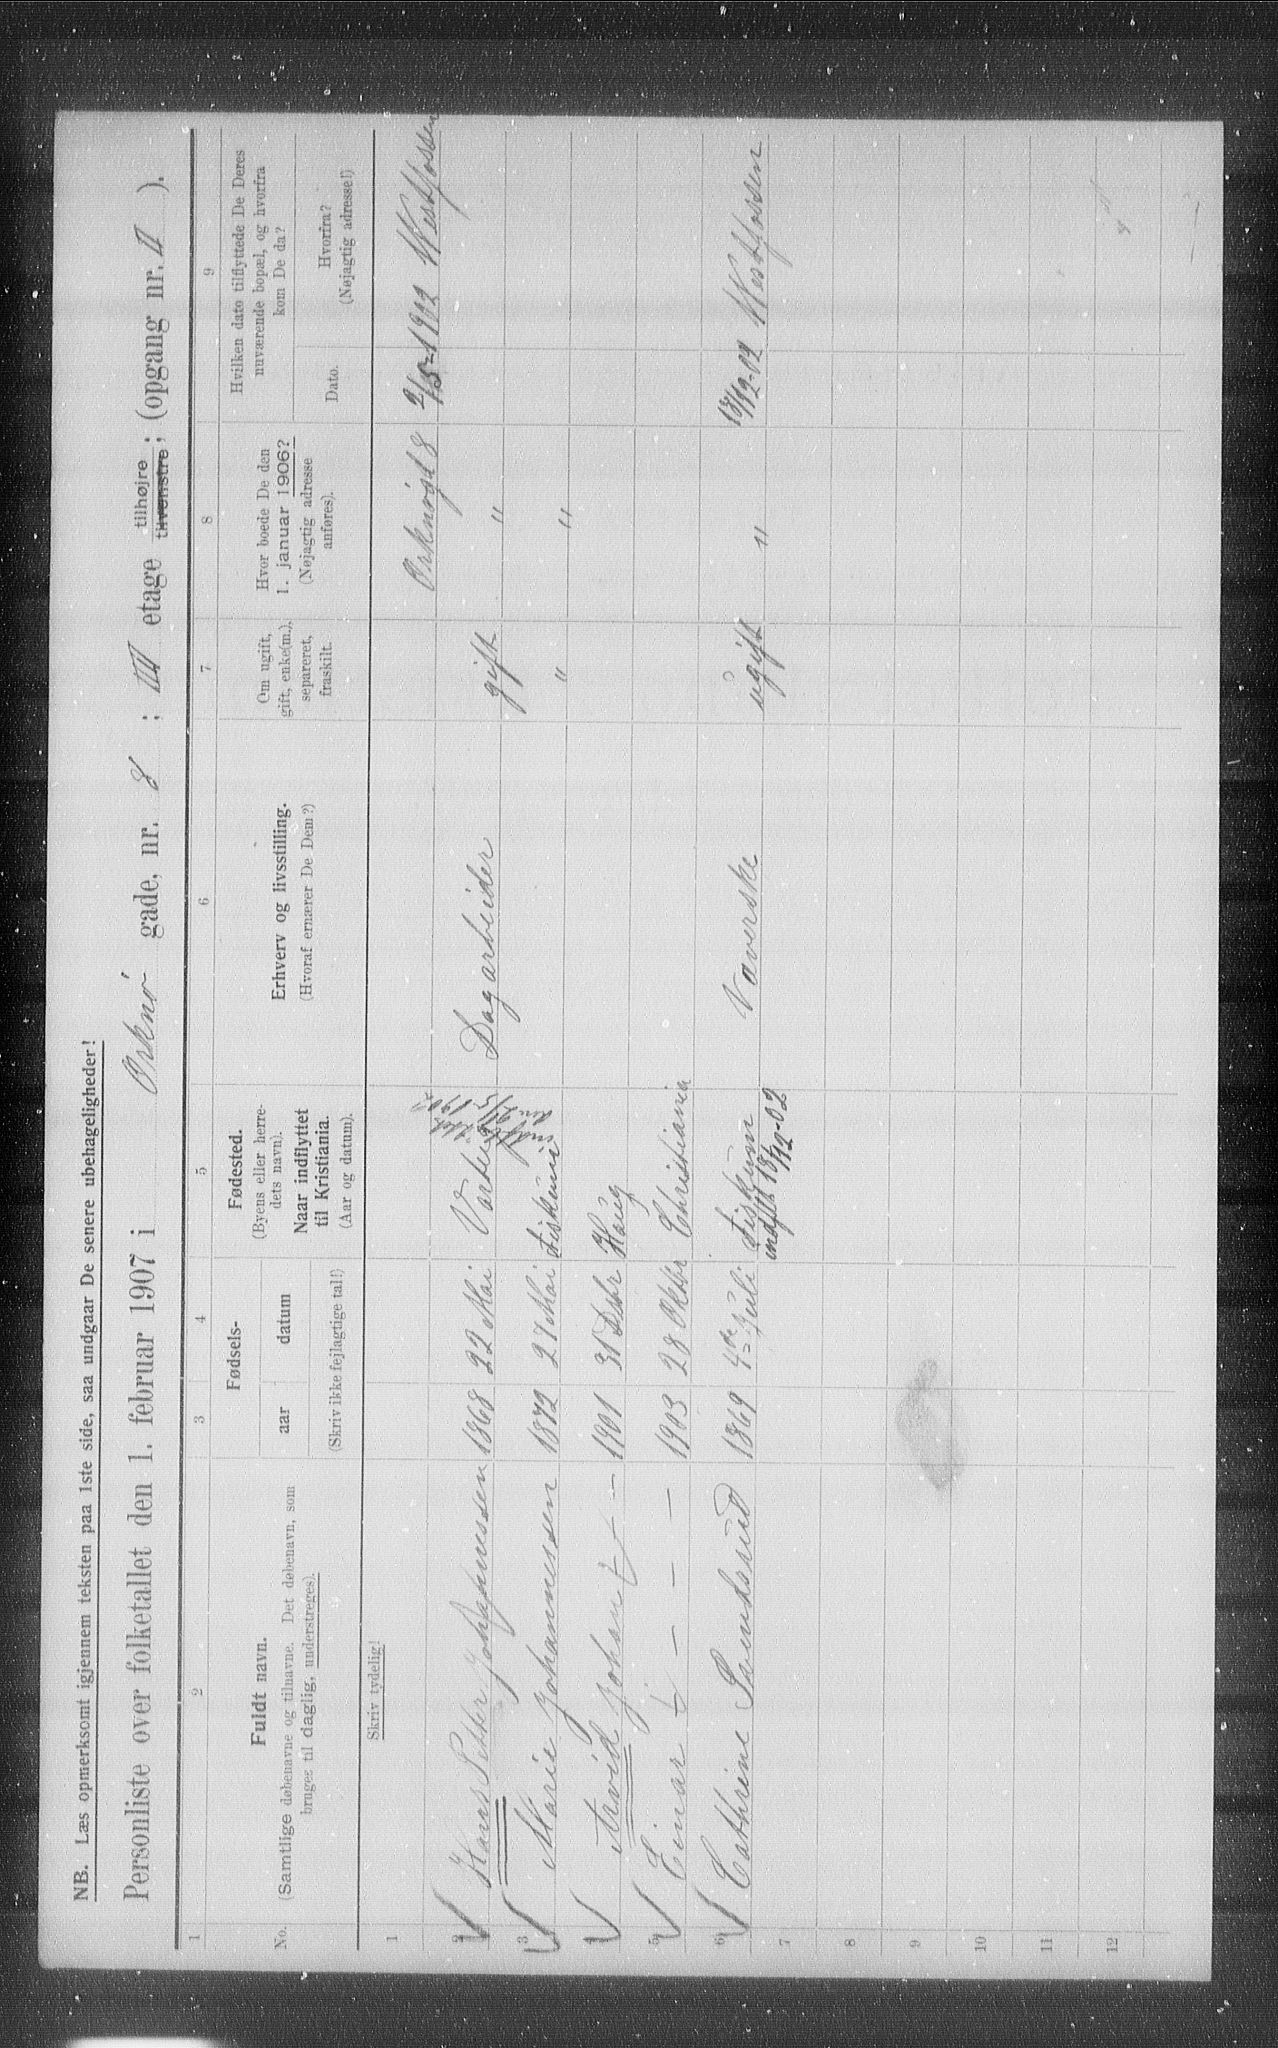 NB. Læs opmerksomt igjennem teksten paa 1ste side, saa undgaar De senere ubehageligheder!
Personliste over folketallet den 1. februar 1907 i Orknø gade, nr. 8 ; III etage tilhøjre tilvenstre ; (opgang nr. II ).
1 2 3 4 5 6 7 8 9
No.
Fuldt navn.
(Samtlige døbenavne og tilnavne. Det døbenavn, som
bruges til daglig, understreges).
Fødsels-
aar datum
(Skriv ikke fejlagtige tal!)
Fødested.
(Byens eller herre-
dets navn).
Naar indflyttet
til Kristiania.
(Aar og datum).
Erhverv og livsstilling.
(Hvoraf ernærer De Dem?)
Om ugift,
gift, enke(m.),
separeret,
fraskilt.
Hvor boede De den
1. januar 1906?
(Nøjagtig adresse
anføres).
Hvilken dato tilflyttede De Deres
nuværende bopæl, og hvorfra
kom De da?
Dato.
Hvorfra?
(Nøjagtig adresse!)
Skriv tydelig!
1 Orknøgd 8 2/5-1902 Westfossen
2 Hans Petter Johannessen 1868 22 Mai Dagarbeider gift "
3 Marie Johannessen 1872 27 Mai Fiskum " "
4 Arvid Johan — 1901 31 Dsbr Haug
5 Einar — — — — 1903 28 Oktbr Christiania
6 Cathrine Sandsrud 1869 4de Juli Fiskum Væverske ugift " 18/12-02 Westfossen
indfl 18/12-02
7
8
9
10
11
12